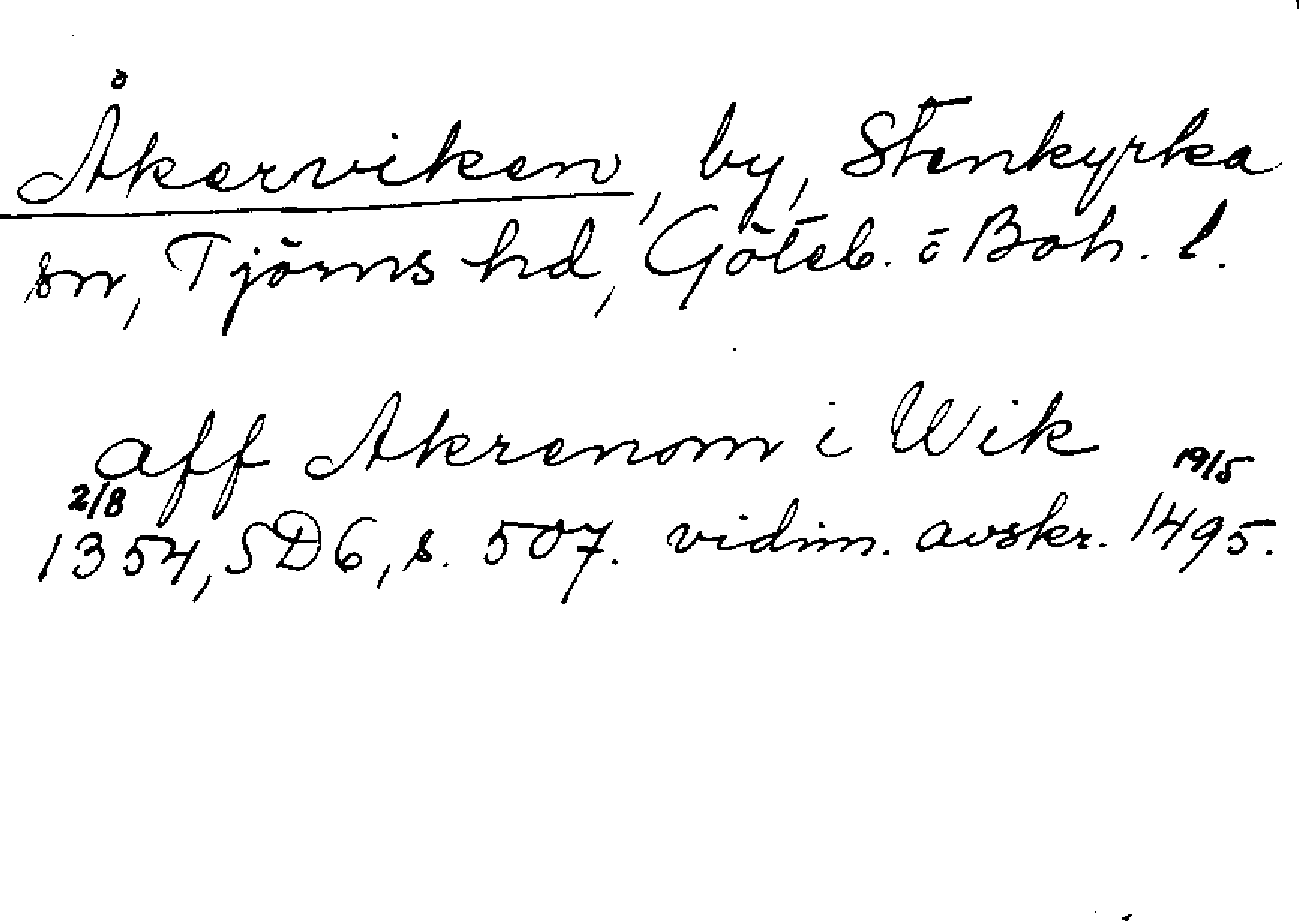 Åkerviken, by, Stenkyrka
sn, Tjörns hd, Göteb. o Boh. l.
aff Akrenom i Wik
2/8 1354, SD6, s. 507. vidim. avskr. 19/5 1495.